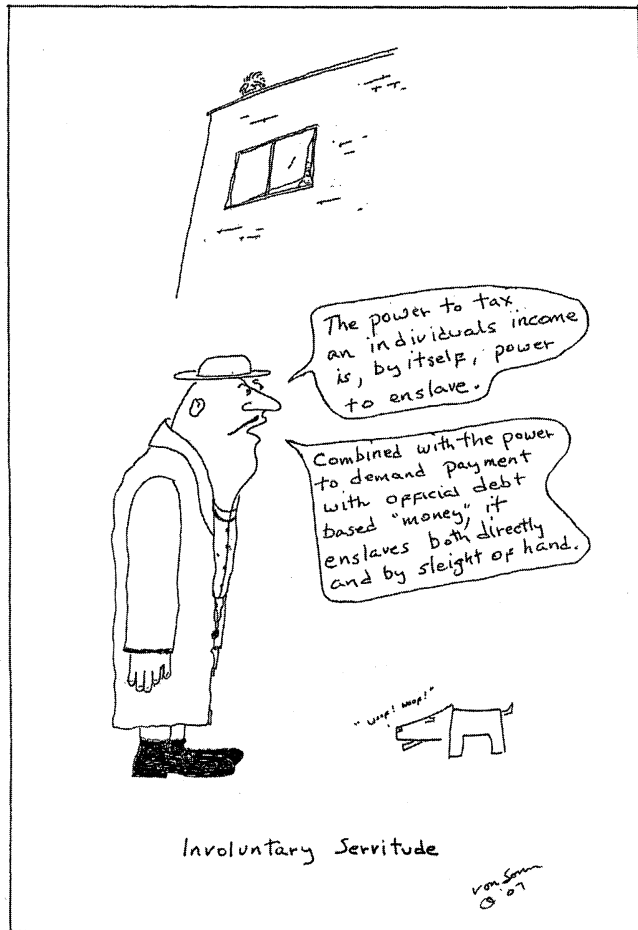 The power to tax
an individuals income
is, by itself, power
to enslave.
Combined with the power
to demand payment
with official debt
based "money", it
enslaves both directly
and by sleight of hand.
"woof! woof!"
Involuntary Servitude
'07